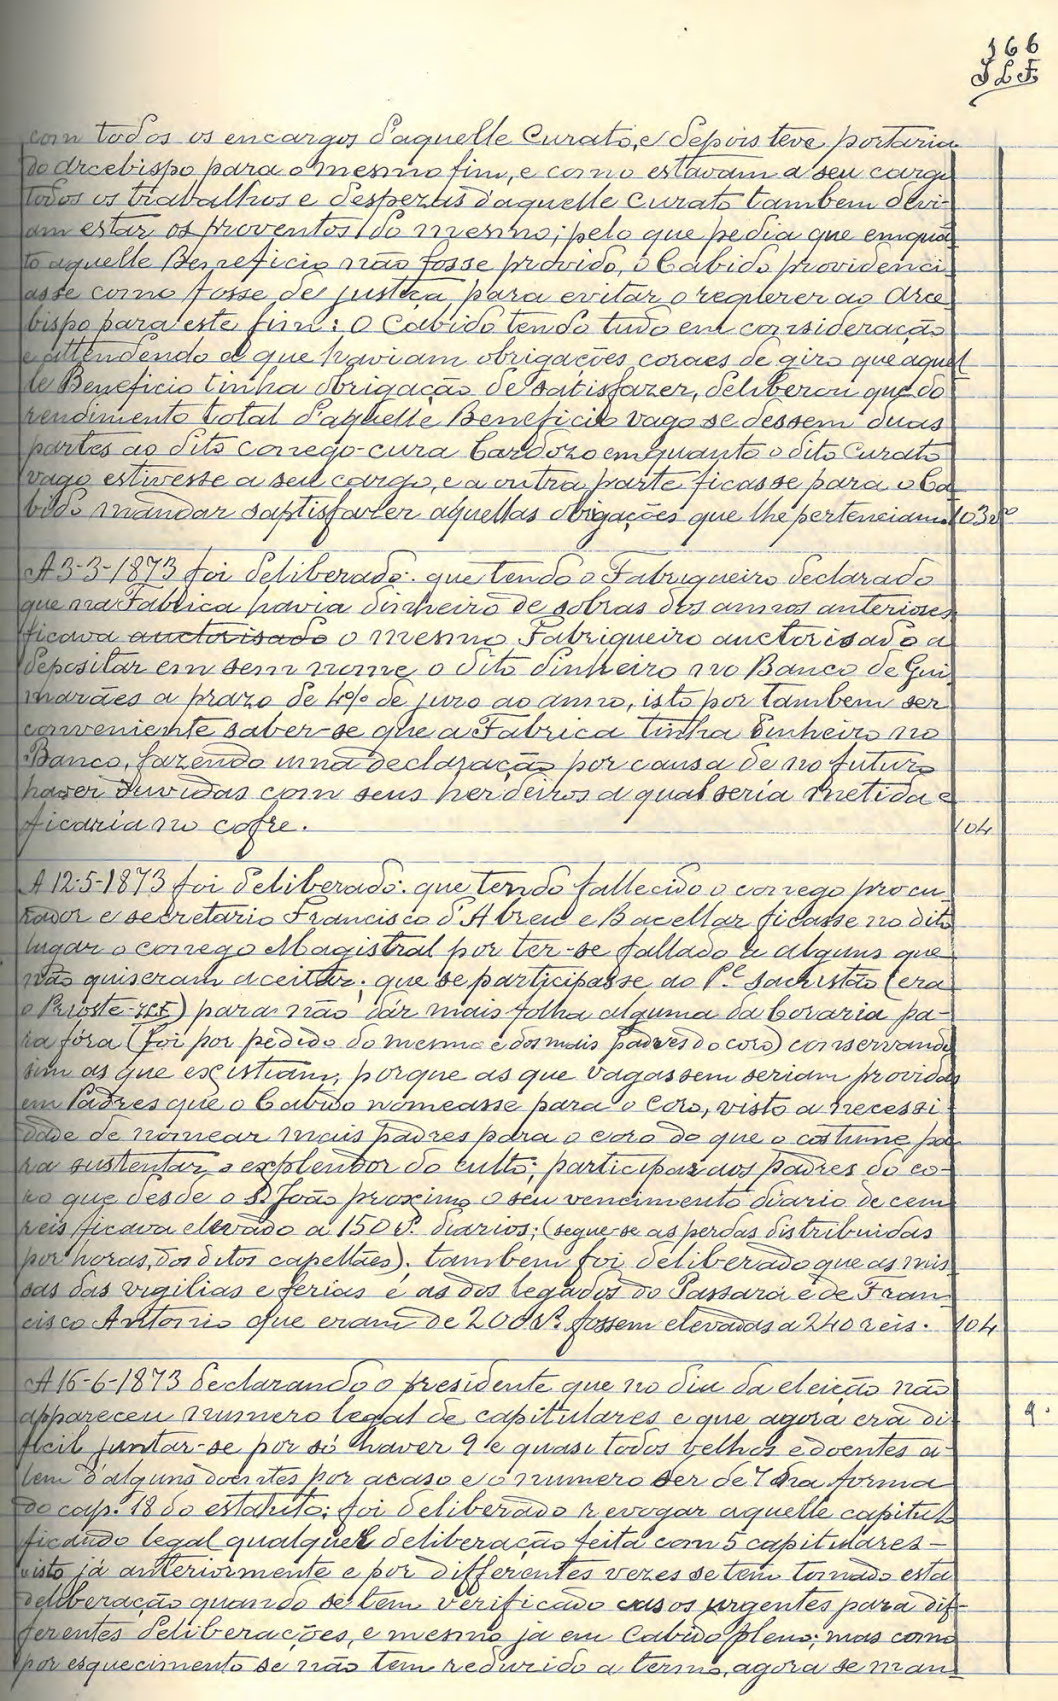 166
JLF
com todos os encargos d'aquelle Curato, e depois teve portaria
do Arcebispo para o mesmo fim, e como estavam a seu cargo
todos os trabalhos e despezas d'aquelle Curato tambem devi-
am estar os proventos do mesmo; pelo que pedia que emquan-
to aquelle Beneficio não fosse provido, o Cabido providenci-
asse como fosse de justiça, para evitar o requerer ao Arce-
bispo para este fim: O Cabido tendo tudo em consideração
e attendendo a que haviam obrigações coraes de giro que aquel-
le Beneficio tinha obrigação de satisfazer, deliberou que do
rendimento total d'aquelle Beneficio vago se dessem duas
partes ao dito conego-cura Cardozo emquanto o dito Curato
vago estivesse a seu cargo, e a outra parte ficasse para o Ca-
bido mandar saptisfazer aquellas obrigações que lhe pertenciam. 103vº
A 3-3-1873 foi deliberado: que tendo o Fabriqueiro declarado
que na Fabrica havia dinheiro de sobras dos annos anteriores
ficava auctorisado o mesmo Fabriqueiro auctorisado a
depositar em sem nome o dito dinheiro no Banco de Gui-
marães a prazo de 4% de juro ao anno, isto por tambem ser
conveniente saber-se que a Fabrica tinha dinheiro no
Banco, fazendo uma declaração por causa de no futuro
haver duvidas com seus herdeiros a qual seria metida e
ficaria no cofre. 104
A 12-5-1873 foi deliberado: que tendo fallecido o conego procu-
rador e secretario Francisco d'Abreu e Bacellar ficasse no dito
lugar o conego Magistral por ter-se fallado a alguns que
não quiseram aceitar; que se participasse ao Pe sachristão (era
o Prioste-JLF) para não dár mais folha alguma da Coraria pa-
ra fóra (foi por pedido do mesmo e dos mais padres do coro) conservando
sim as que existiam, porque as que vagassem seriam providas
em Padres que o Cabido nomeasse para o coro, visto a necessi-
dade de nomear mais padres para o coro do que o costume pa-
ra sustentar o explendor do culto; participar aos padres do co-
ro que desde o S. João proximo o seu vencimento diario de cem
reis ficava elevado a 150 rs. diarios; (segue-se as perdas distribuidas
por horas, dos ditos capellães); tambem foi deliberado que as mis-
sas das vigilias e ferias e as dos legados do Passara e de Fran-
cisco Antonio que eram de 200 rs. fossem elevadas a 240 reis. 104
A 16-6-1873 declarando o presidente que no dia da eleição não
appareceu numero legal de capitulares e que agora era di- 9.
ficil juntar-se por só haver 9 e quasi todos velhos e doentes a-
lem d'alguns doentes por acaso e o numero ser de 7 na forma
do cap. 18 do estatuto; foi deliberado revogar aquelle capitulo
ficando legal qualquer deliberação feita com 5 capitulares -
visto já anteriormente e por differentes vezes se tem tomado esta
deliberação quando se tem verificado casos urgentes para dif-
ferentes deliberações, e mesmo já em Cabido pleno; mas como
por esquecimento se não tem reduzido a termo, agora se man-